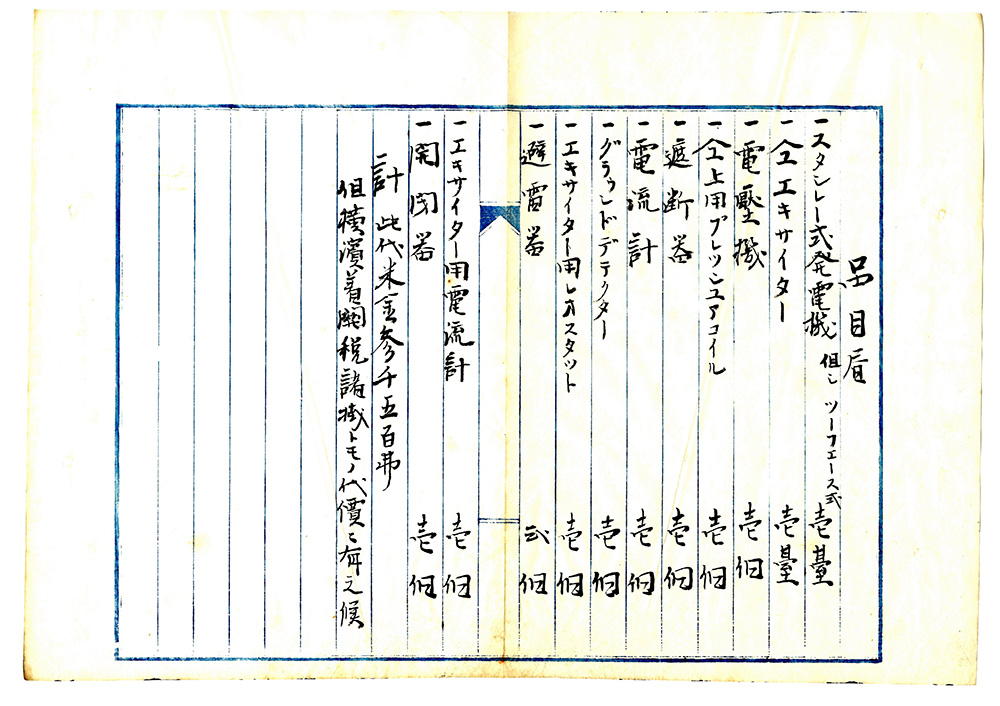 品目眉
一スタンレー式発電機 但シツーフエース式 壱臺
一仝エキサイター 壱臺
一電壓機 壱個
一仝上用プレッシユアコイル 壱個
一遮断器 壱個
一電流計 壱個
一グラウンドデテクター 壱個
一エキサイター用レオスタット 壱個
一避雷器 弐個
一エキサイター用電流計 壱個
一開閉器 壱個
計 此代米金参千五百弗
但横濱着関税諸掛トモノ代價ニ有之候